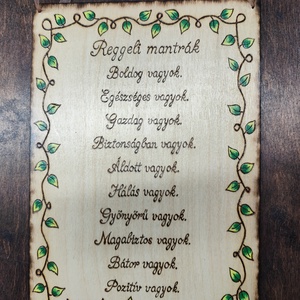 Reggeli mantrák
Boldog vagyok.
Egészséges vagyok.
Gazdag vagyok.
Biztonságban vagyok.
Áldott vagyok.
Hálás vagyok.
Gyönyörű vagyok.
Magabiztos vagyok.
Bátor vagyok.
Pozitív vagyok.